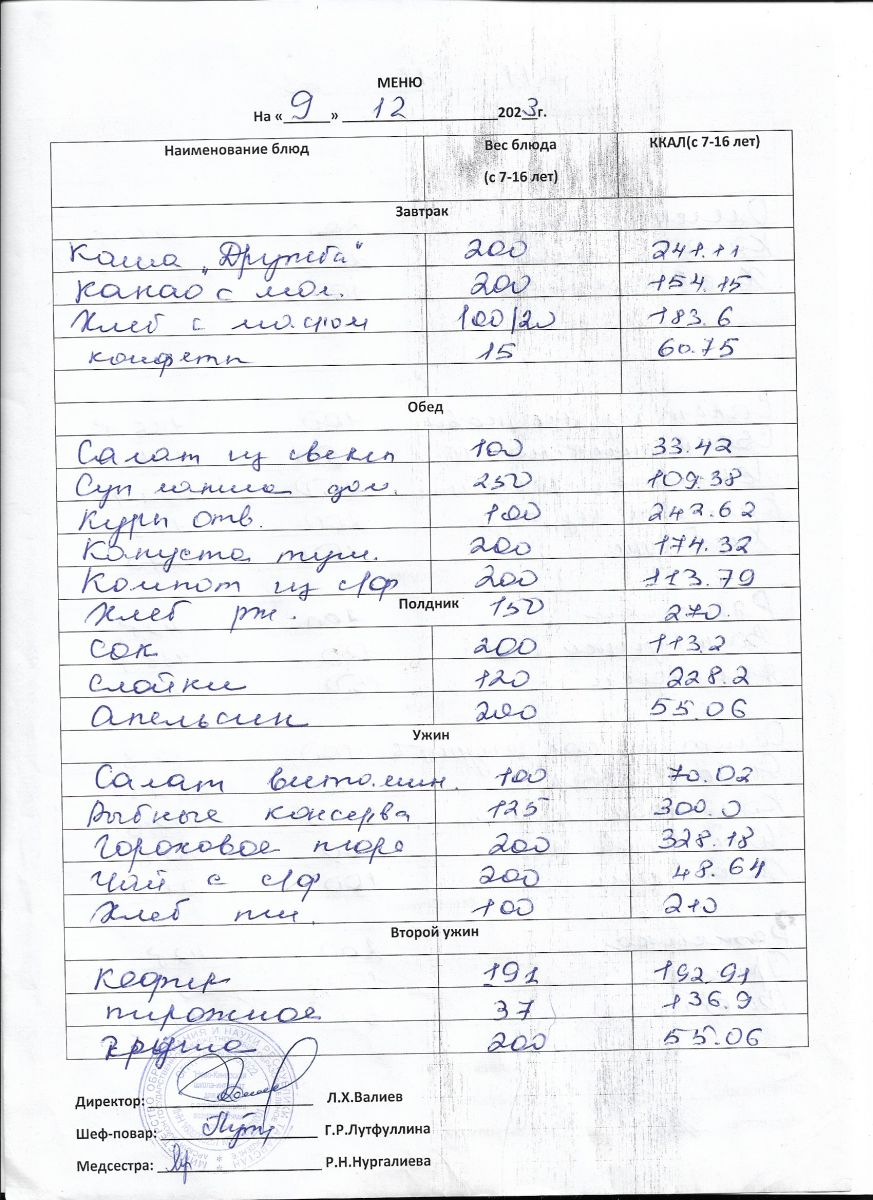 МЕНЮ
На «9» 12 2023г.
Наименование блюд Вес блюда (с 7-16 лет) ККАЛ(с 7-16 лет)
Завтрак
Каша „Дружба“ 200 241.11
Какао с мол. 200 154.15
Хлеб с маслом 100/20 183.6
конфеты 15 60.75
Обед
Салат из свеклы 100 33.42
Суп лапша дом. 250 109.38
Куры отв. 100 242.62
Капуста туш. 200 174.32
Компот из с/ф 200 113.79
Хлеб рж. 150 270.
Полдник
Сок 200 113.2
Слойки 120 228.2
Апельсин 200 55.06
Ужин
Салат витамин. 100 70.02
Рыбные консерва 125 300.0
Гороховое пюре 200 328.18
Чай с с/ф 200 48.64
Хлеб пш. 100 210
Второй ужин
Кефир 191 192.91
пирожное 37 136.9
груша 200 55.06
Директор: Л.Х.Валиев
Шеф-повар: Г.Р.Лутфуллина
Медсестра: Р.Н.Нургалиева